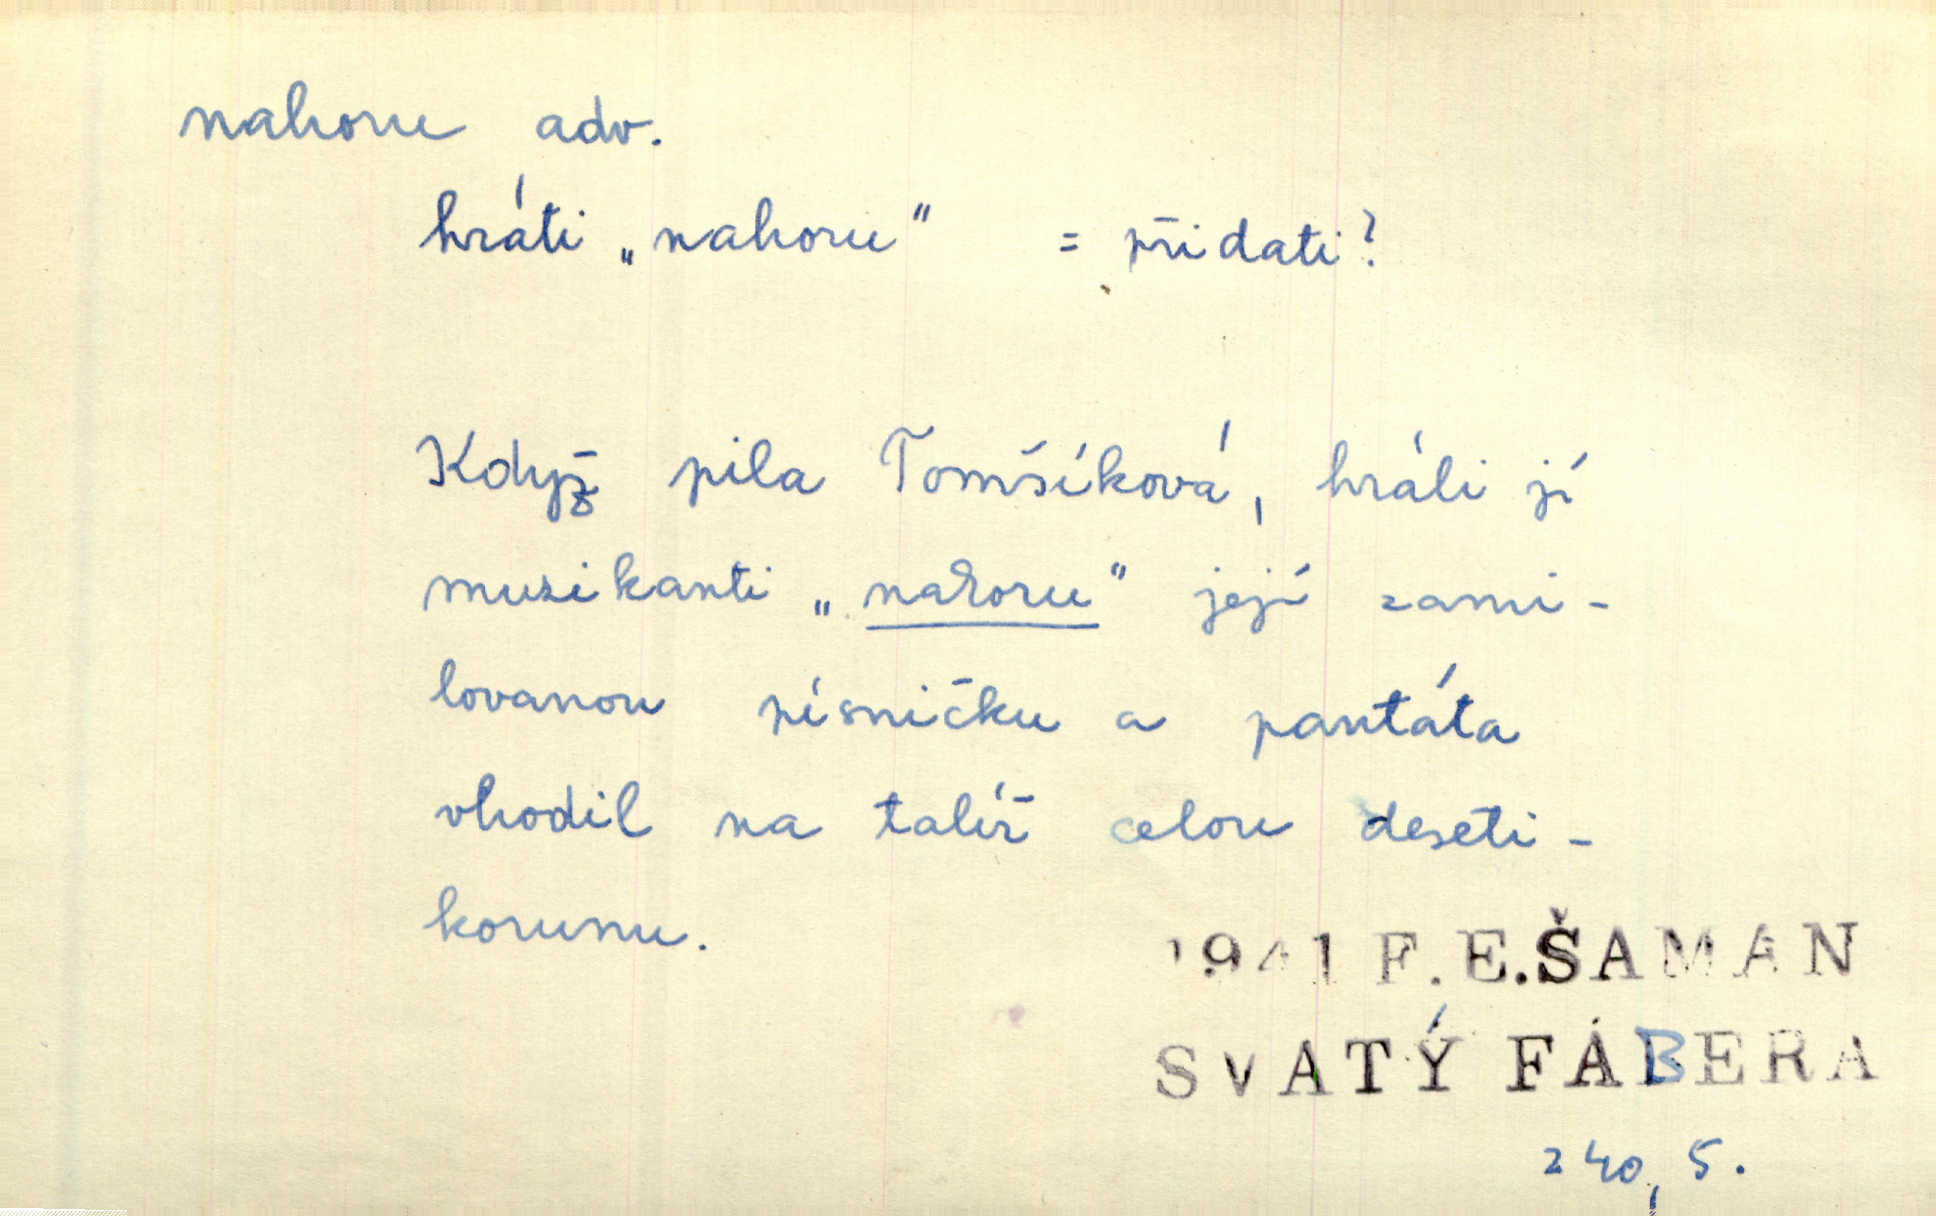 nahoru adv.
hráti „nahoru" = přidati?
Když pila Tomšíková, hráli jí
muzikanti „nahoru" její zami-
lovanou písničku a pantáta
vhodil na talíř celou deseti-
korunu.
1941 F. E. ŠAMAN
SVATÝ FÁBERA
240, 5.